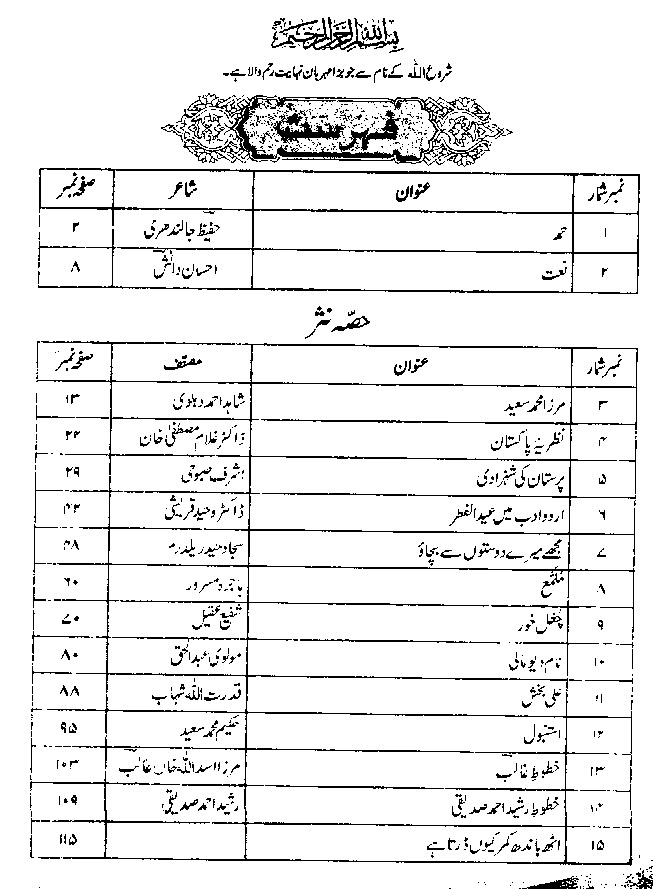 بِسْمِ اللهِ الرَّحْمٰنِ الرَّحِيْمِ
شروع اللہ کے نام سے جو بڑا مہربان نہایت رحم والا ہے۔
فہرست
نمبر شمار عنوان شاعر صفحہ نمبر
۱ حمد حفیظ جالندھری ۲
۲ نعت احسان دانش ۸
حصّہ نثر
نمبر شمار عنوان مصنف صفحہ نمبر
۳ مرزا محمد سعید شاہد احمد دہلوی ۱۳
۴ نظریۂ پاکستان ڈاکٹر غلام مصطفیٰ خان ۲۲
۵ پرستان کی شہزادی اشرف صبوحی ۲۹
۶ اردو ادب میں عید الفطر ڈاکٹر وحید قریشی ۴۲
۷ مجھے میرے دوستوں سے بچاؤ سجاد حیدر یلدرم ۴۸
۸ ملمّع ہاجرہ مسرور ۶۰
۹ چغل خور شفیع عقیل ۷۰
۱۰ نام دیو مالی مولوی عبدالحق ۸۰
۱۱ علی بخش قدرت اللہ شہاب ۸۸
۱۲ استنبول حکیم محمد سعید ۹۵
۱۳ خطوطِ غالب مرزا اسد اللہ خاں غالب ۱۰۳
۱۴ خطوطِ رشید احمد صدیقی رشید احمد صدیقی ۱۰۹
۱۵ اٹھ باندھ کمر کیوں ڈرتا ہے ۱۱۵